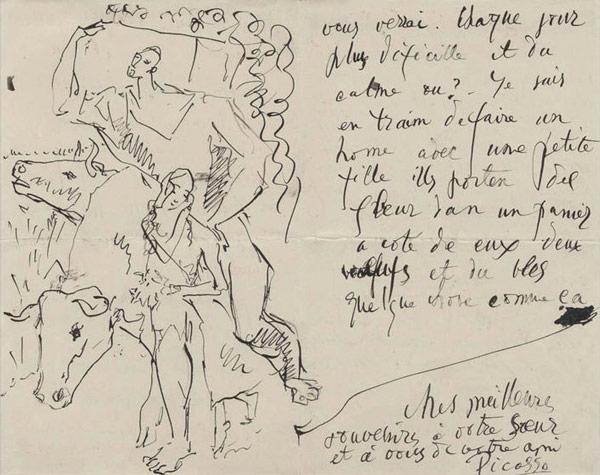 vous verrai. Chaque jour
plus dificille et du
calme ou? – Je suis
en traim de faire un
home avec une petite
fille ills porten des
fleur dan un panier
a cote de eux deux
et du bles
quelque chose comme ca
Mes meilleurs
souvenirs à votre sœur
et à vous de votre ami
Picasso